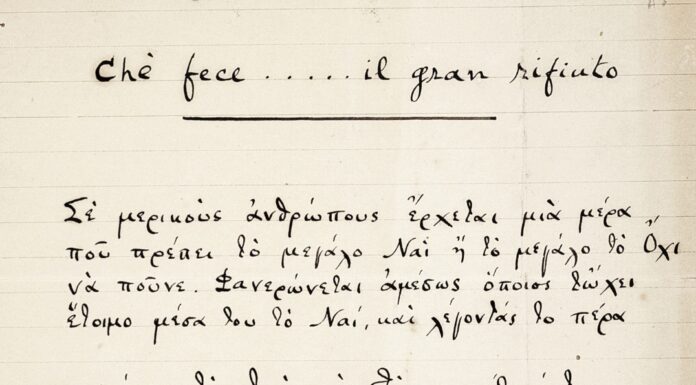 Chè fece ..... il gran rifiuto
Σὲ μερικοὺς ἀνθρώπους ἔρχεται μιὰ μέρα
ποῦ πρέπει τὸ μεγάλο Ναὶ ἢ τὸ μεγάλο τὸ Ὄχι
νὰ ποῦνε. Φανερώνεται ἀμέσως ὅποιος τὤχει
ἕτοιμο μέσα του τὸ Ναί, καὶ λέγοντάς το πέρα